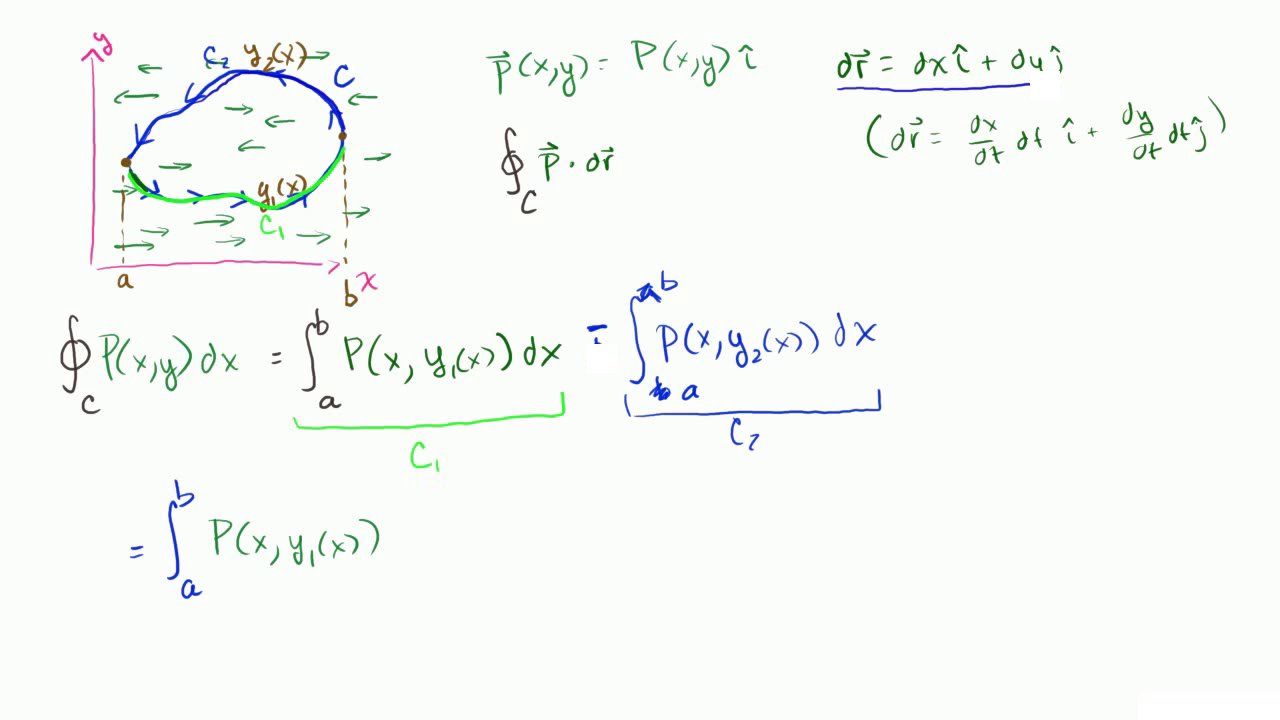 y
C₂ y₂(x) C
y₁(x)
C₁
a b x
P⃗(x,y) = P(x,y) î
dr⃗ = dx î + dy ĵ
∮_C P⃗ · dr⃗
(dr⃗ = dx/dt dt î + dy/dt dt ĵ)
∮_C P(x,y) dx = ∫_a^b P(x, y₁(x)) dx - ∫_a^b P(x, y₂(x)) dx
C₁ C₂
= ∫_a^b P(x, y₁(x))